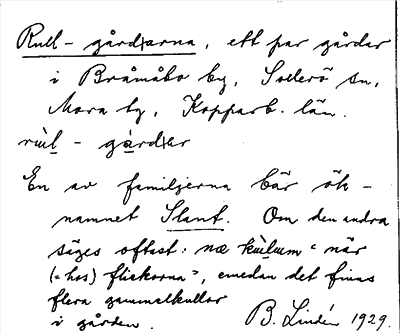 Rull-gårdarna, ett par gårdar
i Bråmåbo by, Sollerö sn,
Mora tg, Kopparb. län.
rùl - gàrdar
En av familjerna bär ök-
namnet Slant. Om den andra
säges oftast: næ kùlum "när
(= hos) flickorna", emedan det finns
flera gammalkullor
i gården. B. Lindén 1929.